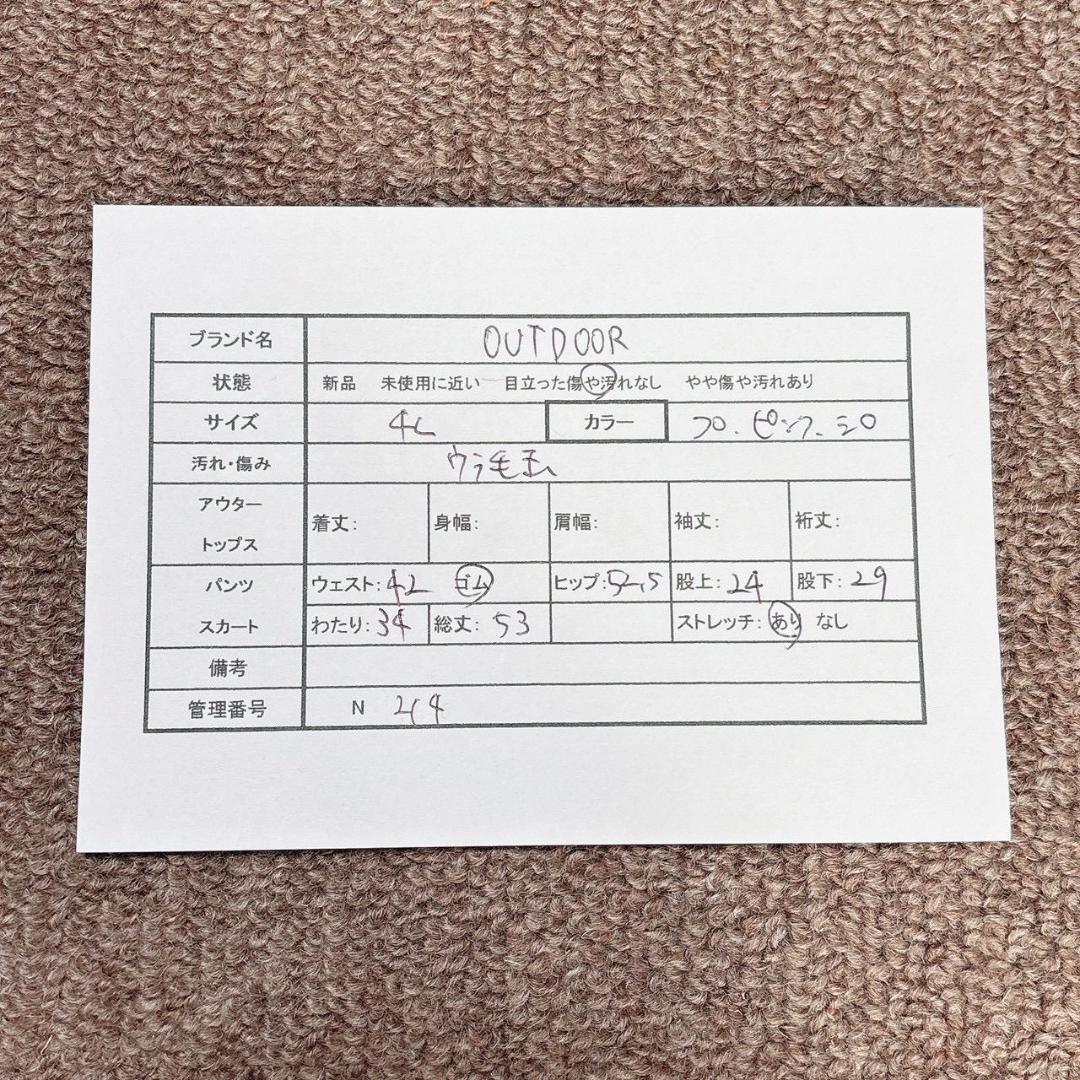 ブランド名 OUTDOOR
状態 新品 未使用に近い 目立った傷や汚れなし やや傷や汚れあり
サイズ 4L カラー クロ.ピンク.シロ
汚れ・傷み ウラ毛玉
アウター
トップス 着丈: 身幅: 肩幅: 袖丈: 裄丈:
パンツ ウェスト:42 ゴム ヒップ:52,5 股上:24 股下:29
スカート わたり:34 総丈:53 ストレッチ:あり なし
備考
管理番号 N 214